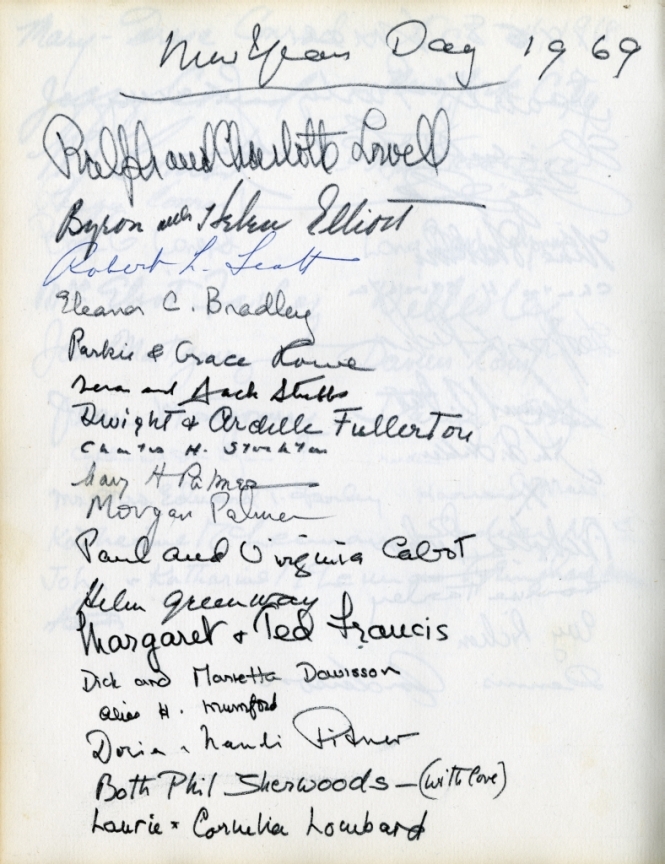 New Years Day 1969
Ralph and Charlotte Lowell
Byron and Helen Elliott
Robert L. Scott
Eleanor C. Bradley
Parkie & Grace Rowe
and Jack Stubbs
Dwight & Ardelle Fullerton
Charles H. Stockton
Mary H Palmer
Morgan Palmer
Paul and Virginia Cabot
Helen Greenway
Margaret & Ted Francis
Dick and Marietta Dawisson
H. Mumford
Both Phil Sherwoods - (with love)
Laurie & Cornelia Lombard